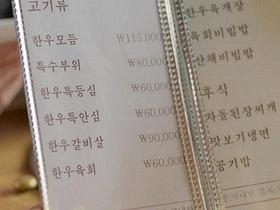 고기류
한우모듬 ₩115,000
특수부위 ₩80,000
한우특등심 ₩60,000
한우특안심 ₩60,000
한우갈비살 ₩90,000
한우육회 ₩60,000
한우육개장
육회비빔밥
산채비빔밥
후식
차돌된장찌개
맛보기냉면
공기밥